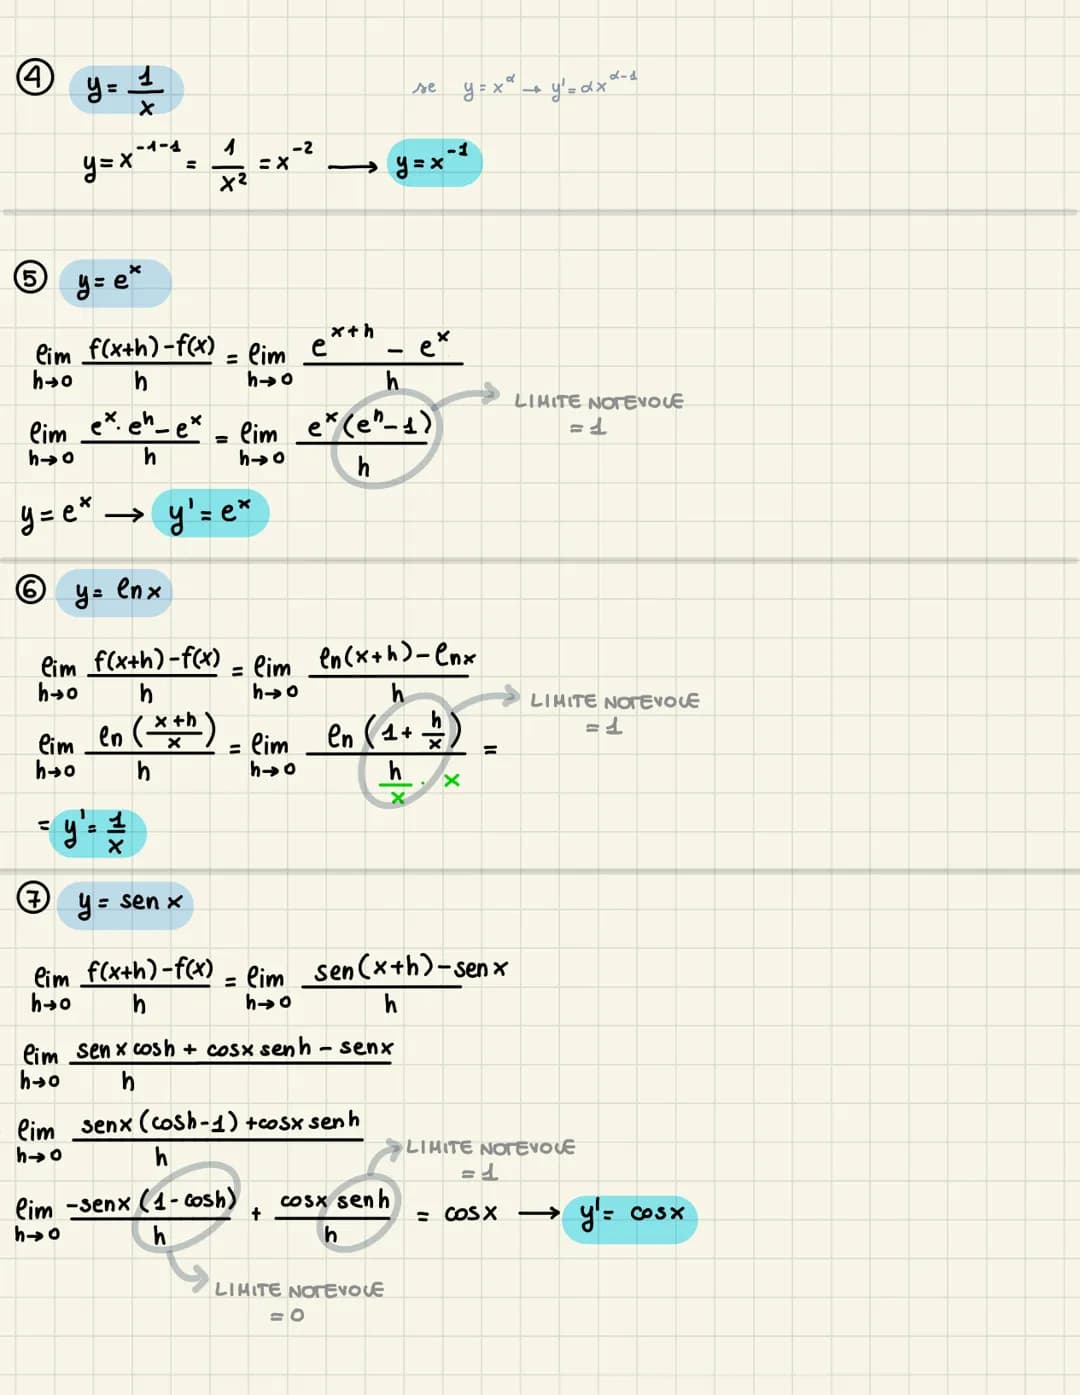 ④ y = 1/x se y = x^α → y' = αx^(α-1)
y = x^(-1-1) = 1/x² = x^(-2) → y = x^(-1)
⑤ y = e^x
lim h→0 (f(x+h) - f(x))/h = lim h→0 (e^(x+h) - e^x)/h
LIMITE NOTEVOLE
= 1
lim h→0 (e^x · e^h - e^x)/h = lim h→0 (e^x (e^h - 1))/h
y = e^x → y' = e^x
⑥ y = ln x
lim h→0 (f(x+h) - f(x))/h = lim h→0 (ln(x+h) - ln x)/h
LIMITE NOTEVOLE
= 1
lim h→0 (ln ((x+h)/x))/h = lim h→0 (ln (1 + h/x))/(h/x · x) =
= y' = 1/x
⑦ y = sen x
lim h→0 (f(x+h) - f(x))/h = lim h→0 (sen(x+h) - sen x)/h
lim h→0 (sen x cosh + cosx senh - senx)/h
lim h→0 (senx (cosh - 1) + cosx senh)/h
LIMITE NOTEVOLE
= 1
lim h→0 (-senx (1 - cosh))/h + (cosx senh)/h = cosx → y' = cosx
LIMITE NOTEVOLE
= 0